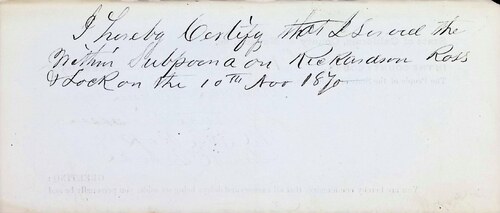 I hereby Certify that I Served the
Within Subpoena on Richardson Ross
& Lock on the 10th Nov 1870